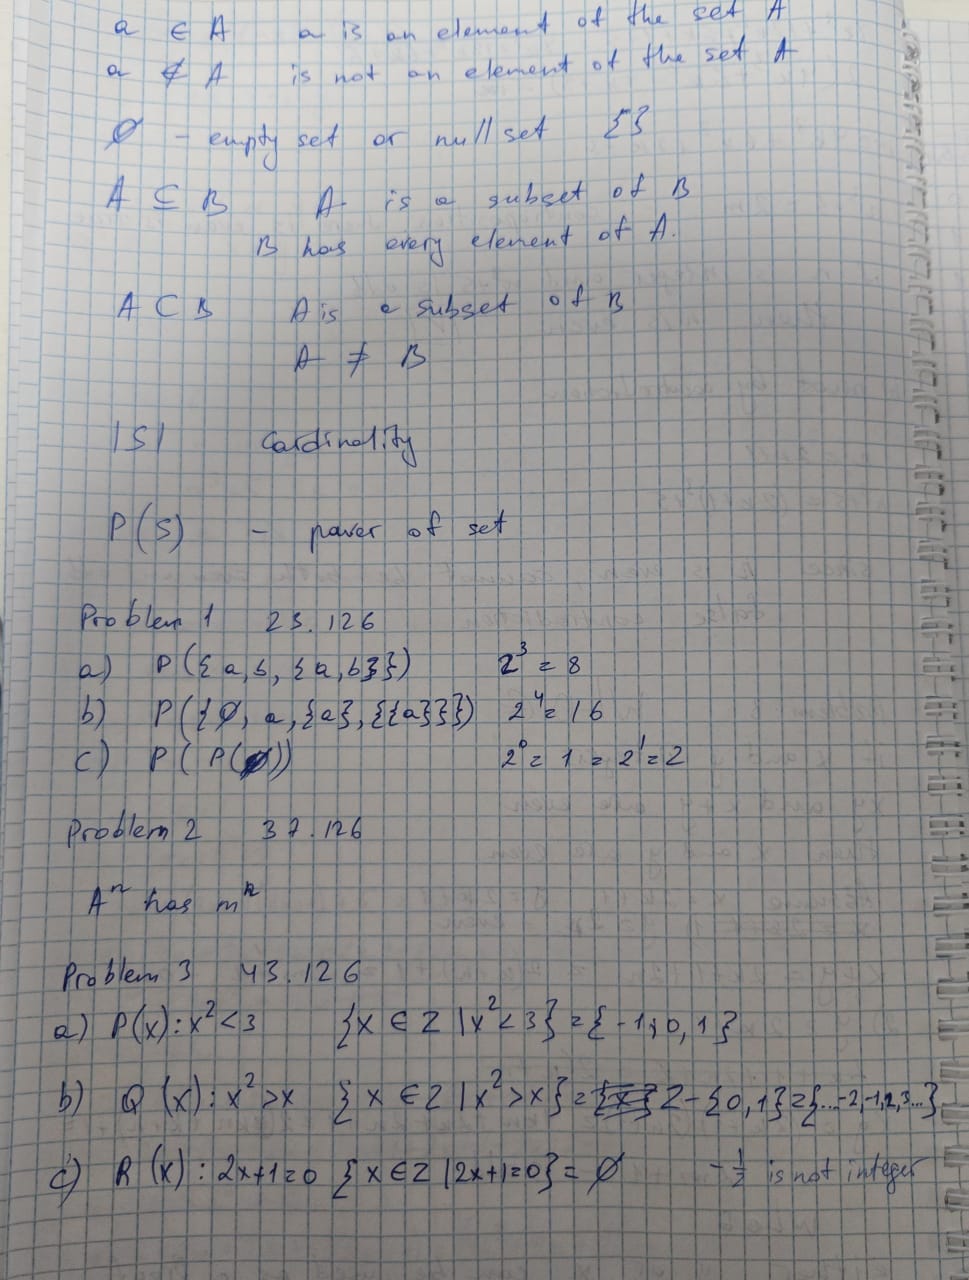 a ∈ A a is an element of the set A
a ∉ A is not an element of the set A
∅ - empty set or null set {}
A ⊆ B A is a subset of B
B has every element of A.
A ⊂ B A is a subset of B
A ≠ B
|S| Cardinality
P(S) - power of set
Problem 1 23.126
a) P({a,b,{a,b}}) 2³ = 8
b) P({∅, a,{a},{{a}}}) 2⁴ = 16
c) P(P(∅)) 2⁰ = 1 = 2¹ = 2
Problem 2 37.126
Aⁿ has mⁿ
Problem 3 43.126
a) P(x): x² < 3 {x ∈ Z | x² < 3} = {-1, 0, 1}
b) Q(x): x² > x {x ∈ Z | x² > x} = Z - {0,1} = {...-2,-1,2,3...}
c) R(x): 2x+1=0 {x ∈ Z | 2x+1=0} = ∅ -½ is not integer